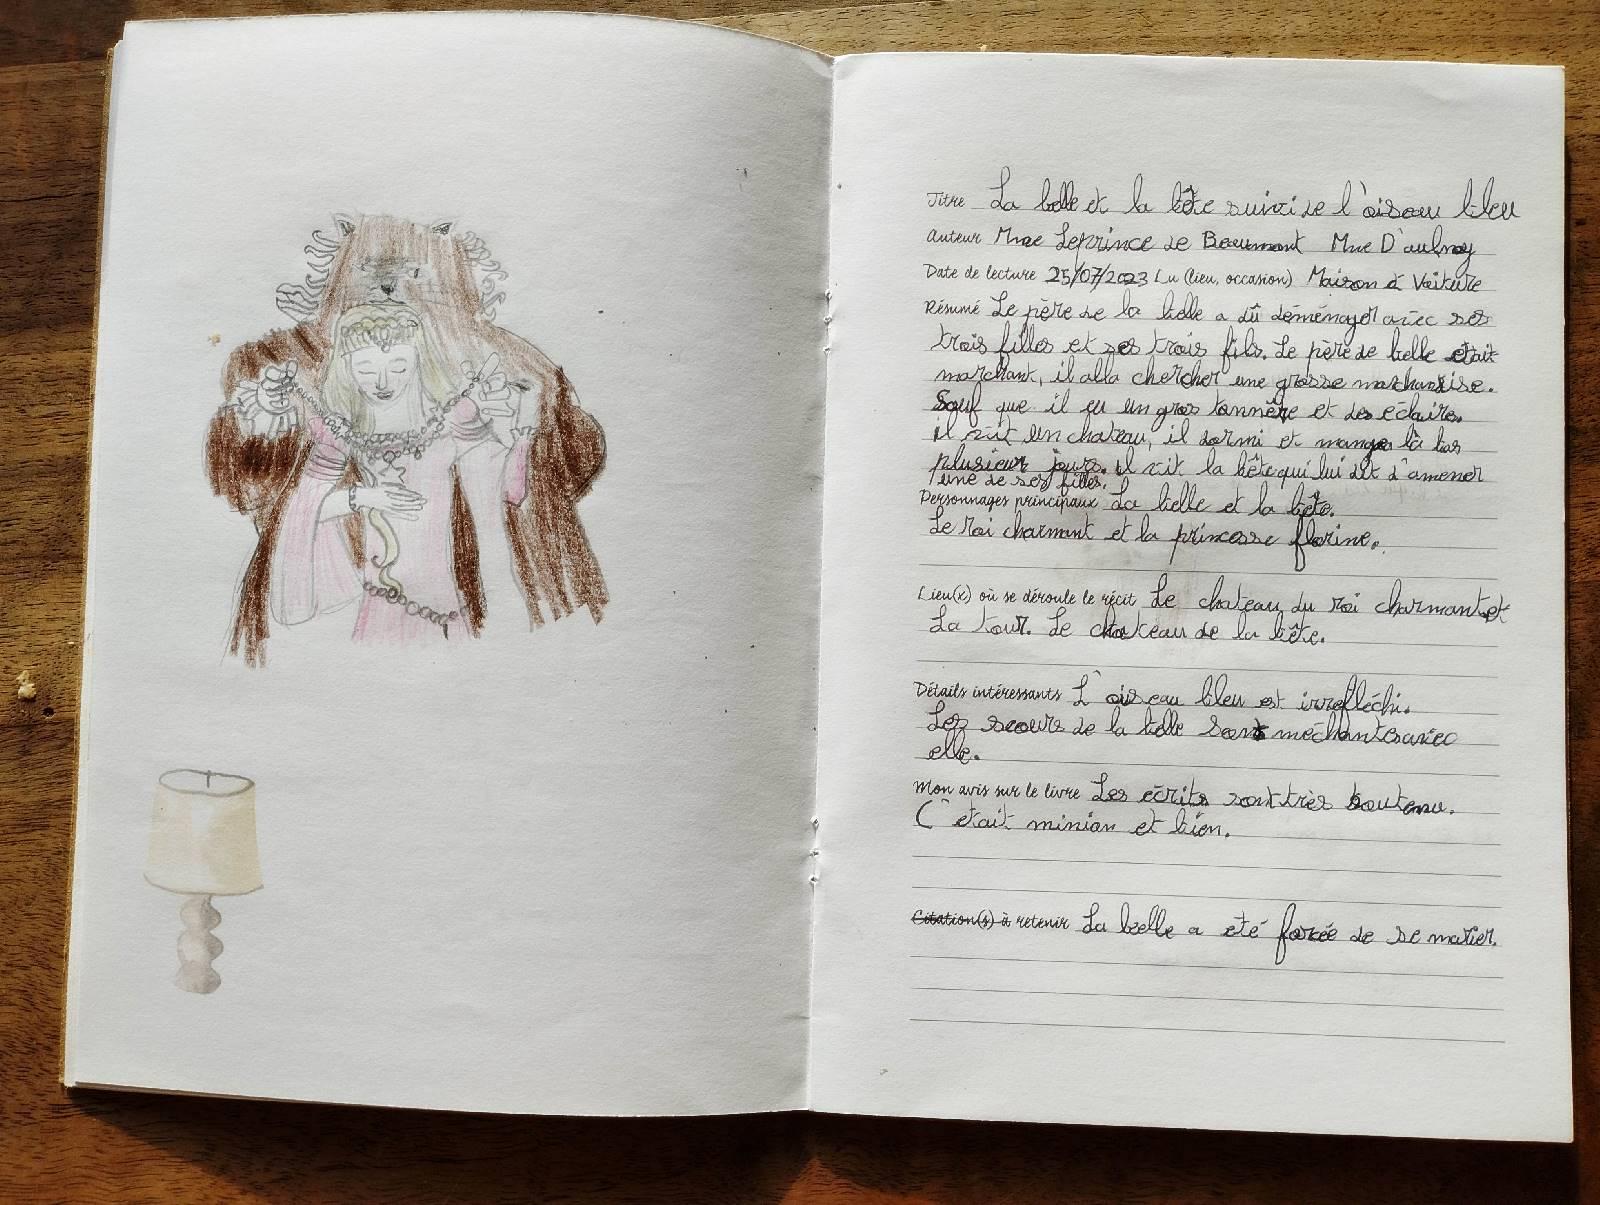 Titre La belle et la bête suivi de l'oiseau bleu
Auteur Mme Leprince de Beaumont Mme D'aulnoy
Date de lecture 25/07/2023 Lu (lieu, occasion) Maison à Voiture
Résumé Le père de la belle a dû déménager avec ses
trois filles et ses trois fils. Le père de belle etait
marchant, il alla chercher une grosse marchandise.
Sauf que il eu un gros tonnère et des éclaire.
Il vit un chateau, il dormi et mangea là bas
plusieur jours. Il vit la bête qui lui dit d'amener
une de ses filles.
Personnages principaux La belle et la bête.
Le roi charmant et la princesse florine.
Lieu(x) où se déroule le récit Le chateau du roi charmant et
La tour. Le chateau de la bête.
Détails intéressants L'oiseau bleu est irrefléchi.
Les soeurs de la belle sont méchantes avec
elle.
Mon avis sur le livre Les écrits sont très soutenu.
C'etait minion et bien.
Citation(s) à retenir La belle a eté forcée de se marier.